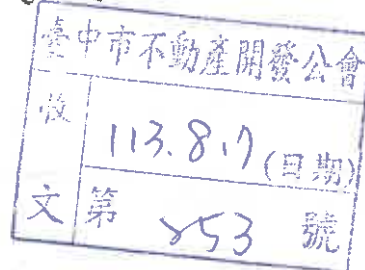 臺中市不動產開發公會
收文
113.8.7(日期)
第 853 號